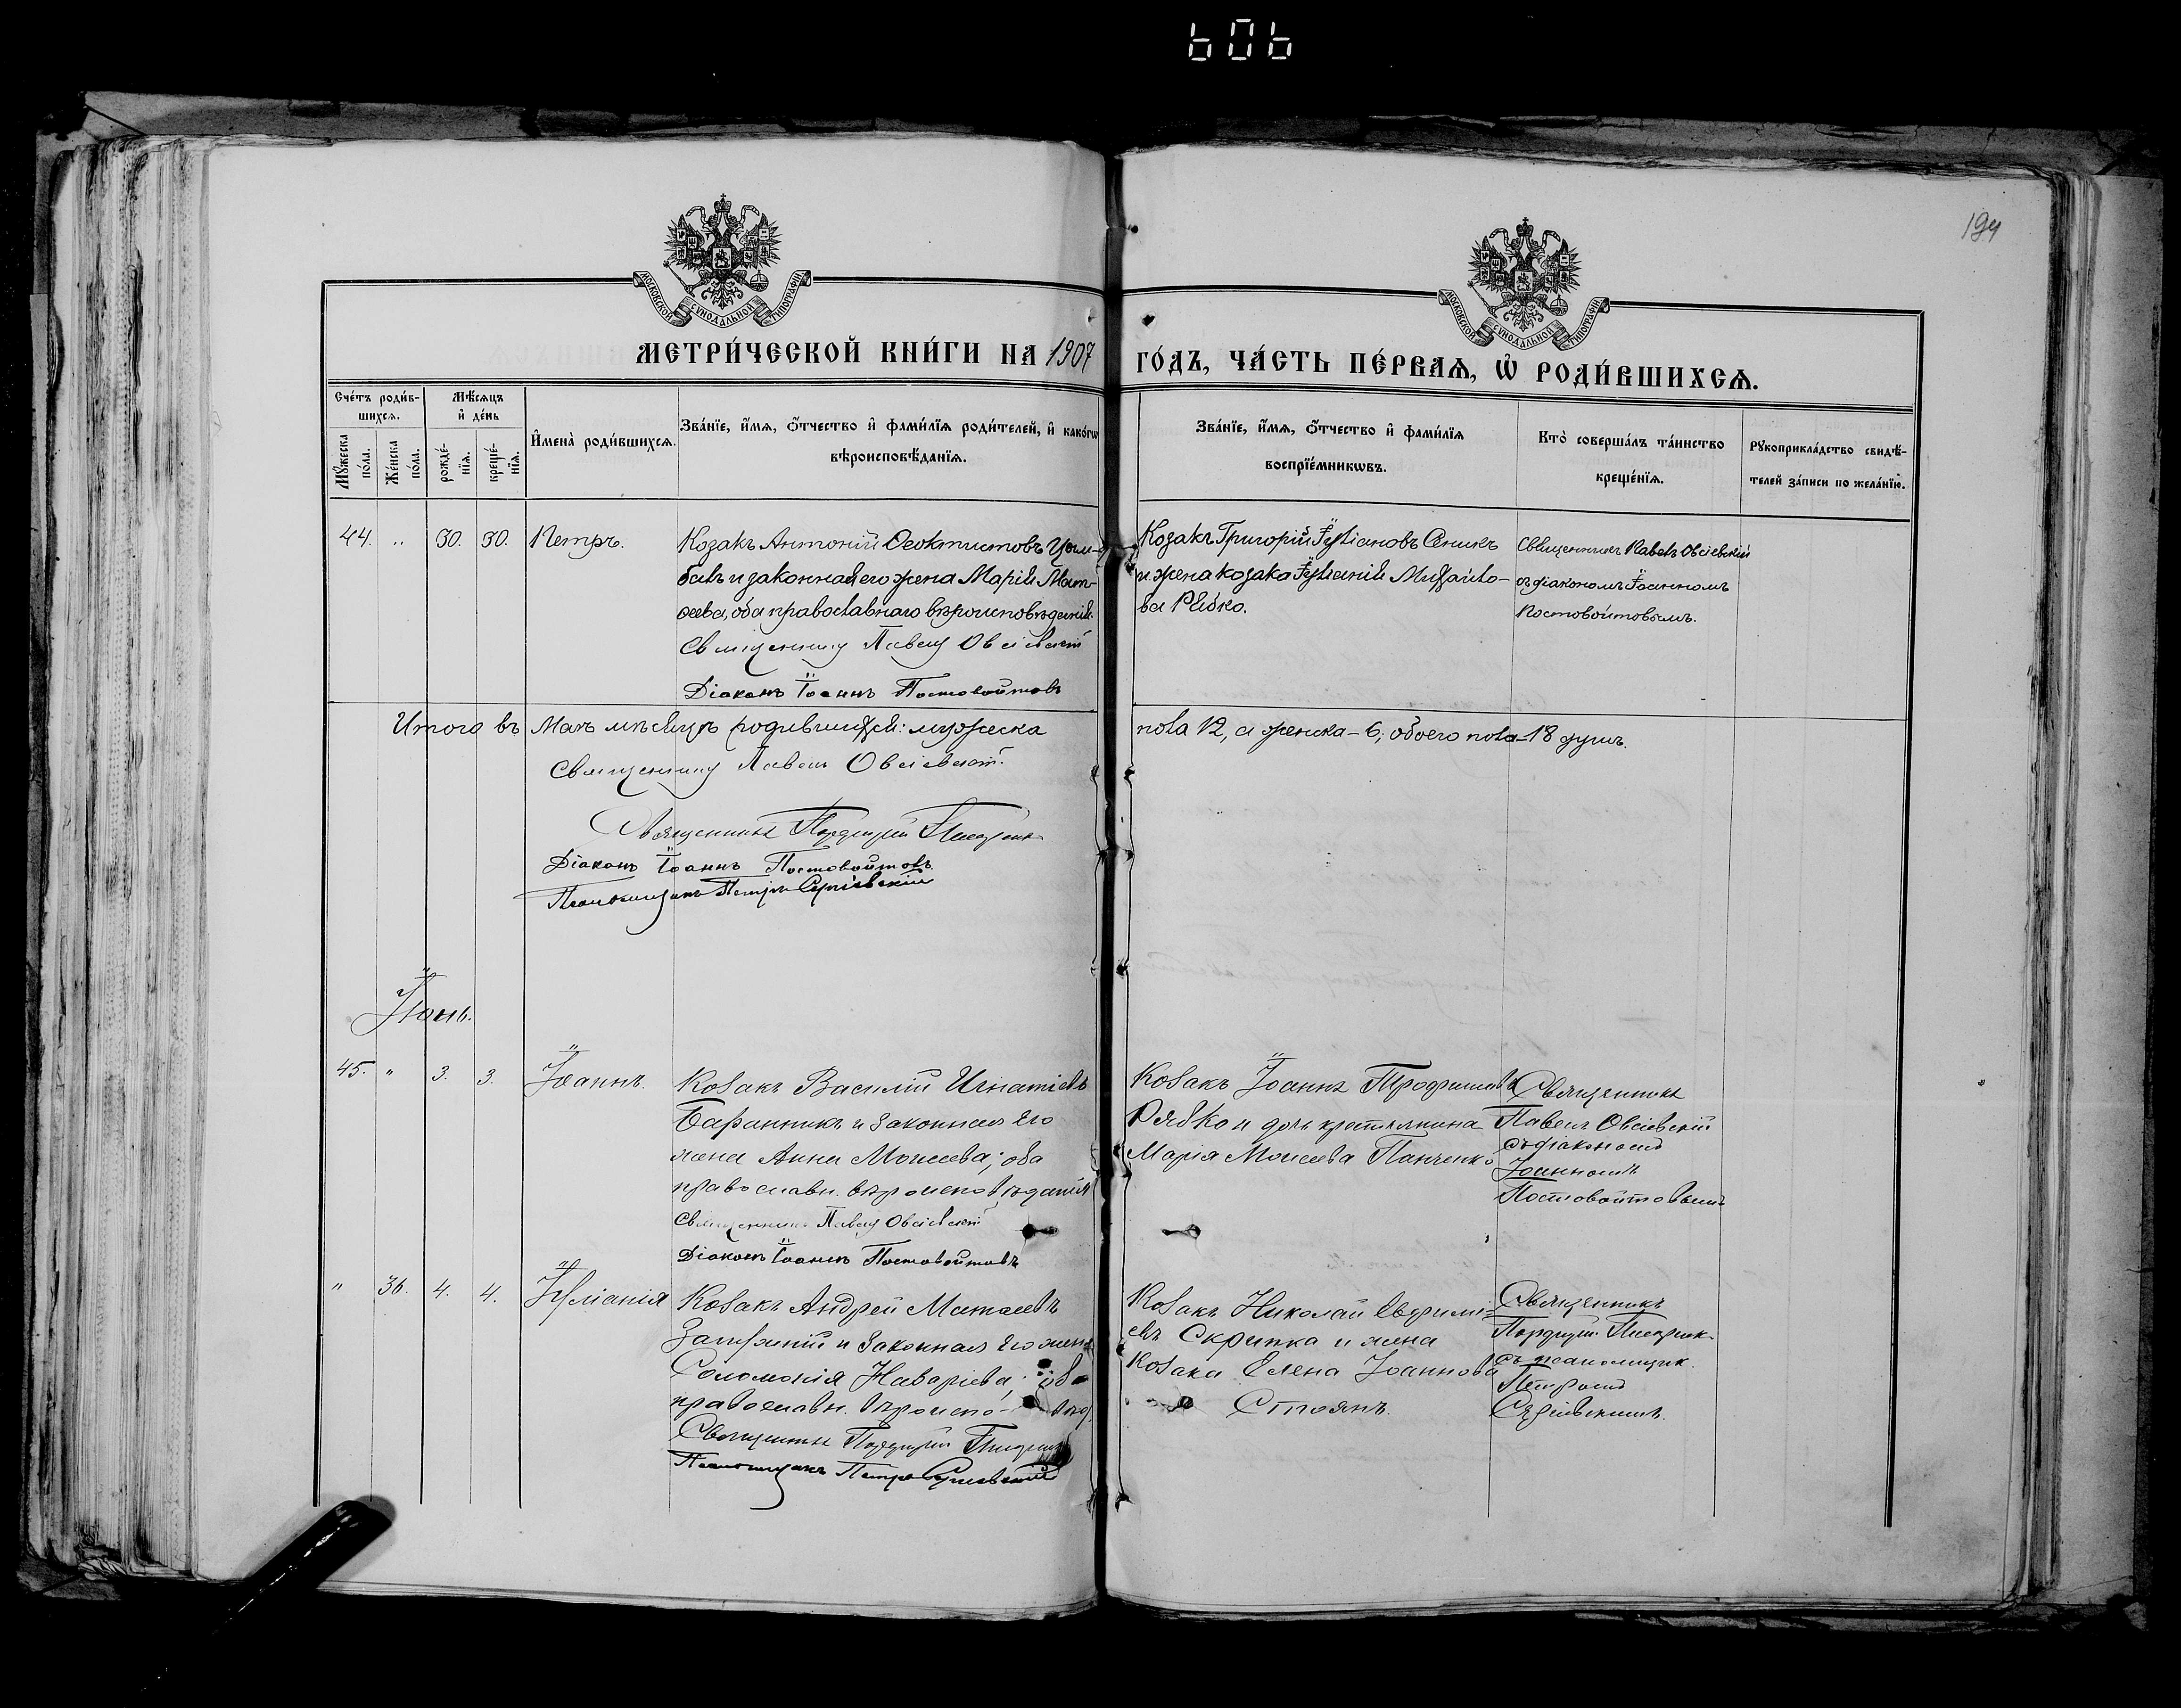 606
194
МОСКОВСКОЙ СѴНОДАЛЬНОЙ ТИПОГРАФІИ
МОСКОВСКОЙ СѴНОДАЛЬНОЙ ТИПОГРАФІИ
МЕТРИ́ЧЕСКОЙ КНИ́ГИ НА 1907
ГО́ДЪ, ЧА́СТЬ ПЕ́РВАѦ, Ѡ҆ РОДИ́ВШИХСѦ.
Сче́тъ роди́в-
шихсѧ.
Мꙋ́жеска
по́ла.
Же́нска
по́ла.
Мѣ́сѧцъ
и҆ де́нь
рожде́-
нїѧ.
креще́-
нїѧ.
И҆мена̀ роди́вшихсѧ.
Зва́нїе, и҆́мѧ, ѻ҆́тчество и҆ фами́лїѧ роди́телей, и҆ како́гѡ
вѣроисповѣ́данїѧ.
Зва́нїе, и҆́мѧ, ѻ҆́тчество и҆ фами́лїѧ
воспрїе́мникѡвъ.
Кто̀ соверша́лъ та́инство
креще́нїѧ.
Рꙋкоприкла́дство свидѣ́-
телей за́писи по жела́нїю.
44. „ 30. 30. Петръ.
Козакъ Антоній Ѳеоктистовъ Цым-
балъ и законная его жена Марія Мат-
ѳеева, оба православнаго вѣроисповѣданія.
Священникъ Павелъ Овсіевскій
Діаконъ Іоаннъ Постовойтовъ
Козакъ Григорій Іуліановъ Сеникъ
и жена козака Іуліанія Михайло-
ва Рябко.
Священникъ Павелъ Овсіевскій
съ діакономъ Іоанномъ
Постовойтовымъ.
Итого въ Маѣ мѣсяцѣ родившихся: мужеска
пола 12, а женска – 6; обоего пола – 18 душъ.
Священникъ Павелъ Овсіевскій.
Священникъ
Діаконъ Іоаннъ Постовойтовъ.
Псаломщикъ Петръ Сергіевскій
Іюнь.
45. „ 3. 3. Іоаннъ.
Козакъ Василій Игнатіевъ
Баранникъ и законная его
жена Анна Моисеева; оба
православн. вѣроисповѣданія
Священникъ Павелъ Овсіевскій
Діаконъ Іоаннъ Постовойтовъ
Козакъ Іоаннъ Трофимовъ
Рябко и дочь крестьянина
Марія Моисеева Панченко
Священникъ
Павелъ Овсіевскій
съ діакономъ
Іоанномъ
Постовойтовымъ
„ 36. 4. 4. Іуліанія
Козакъ Андрей Матѳеевъ
и законная его жена
Соломонія; оба
православн. вѣроиспо-вѣд.
Священникъ
Псаломщикъ Петръ Сергіевскій
Козакъ Николай Евфиміе-
въ Скрипка и жена
козака Елена Іоаннова
Стоянъ.
Священникъ
съ псаломщик.
Петромъ
Сергіевскимъ.